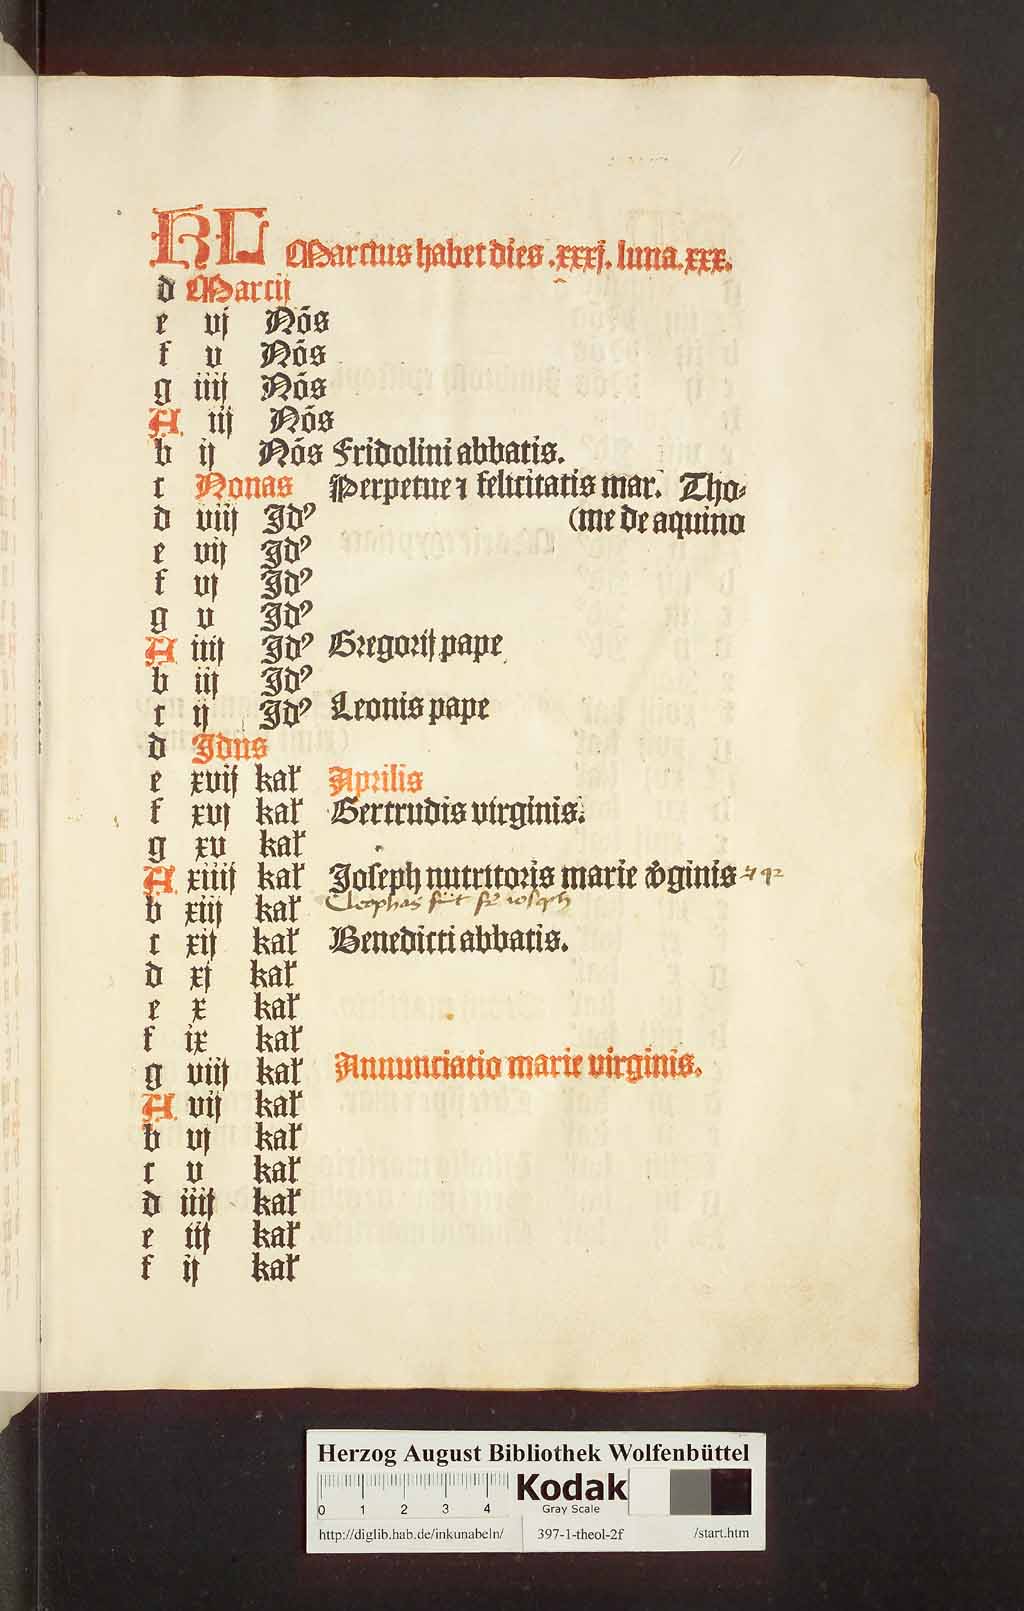 KL Marcius habet dies .xxxj. luna.xxx.
d Marcij
e vj Nōs
f v Nōs
g iiij Nōs
A iij Nōs
b ij Nōs Fridolini abbatis.
c Nonas Perpetue ⁊ felicitatis mar. Tho⸗
d viij Idꝰ (me de aquino
e vij Idꝰ
f vj Idꝰ
g v Idꝰ
A iiij Idꝰ Gregorij pape
b iij Idꝰ
c ij Idꝰ Leonis pape
d Idus
e xvij kal̕ Aprilis
f xvj kal̕ Gertrudis virginis.
g xv kal̕
A xiiij kal̕ Joseph nutritoris marie v̾ginis
b xiij kal̕ Cleophas fuit fr̄ ioseph
c xij kal̕ Benedicti abbatis.
d xj kal̕
e x kal̕
f ix kal̕
g viij kal̕ Annunciatio marie virginis.
A vij kal̕
b vj kal̕
c v kal̕
d iiij kal̕
e iij kal̕
f ij kal̕
Herzog August Bibliothek Wolfenbüttel
0 1 2 3 4 Kodak
Gray Scale
http://diglib.hab.de/inkunabeln/ 397-1-theol-2f /start.htm